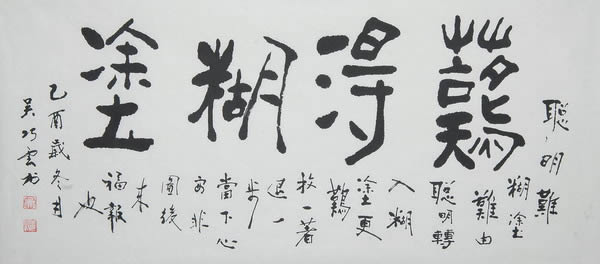 難得糊塗
聰明難
糊塗
難由
聰明轉
入糊
塗更
難
放一著
退一
步
當下心
安非
圖後
來
福報
也
乙酉歲冬月
吳巧雲书